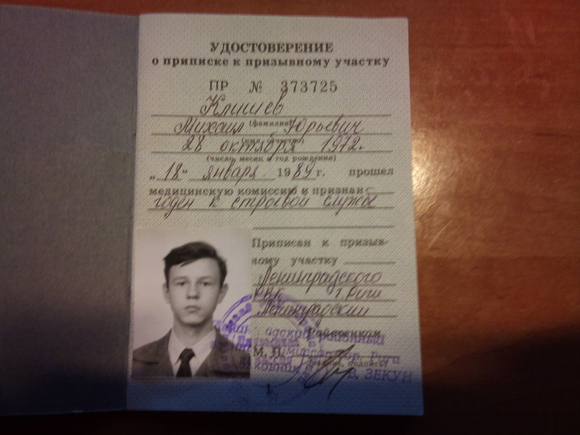 УДОСТОВЕРЕНИЕ
о приписке к призывному участку
ПР № 373725
Клишев
(фамилия)
Михаил Юрьевич
28 октября 1972.
(число, месяц и год рождения)
„18“ января 1989 г. прошел
медицинскую комиссию и признан
годен к строевой службе
Приписан к призыв-
ному участку
Ленинградского
РВК г. Риги
Ленинградский
Райвоенком
М. П.
В. ЗЕКУН